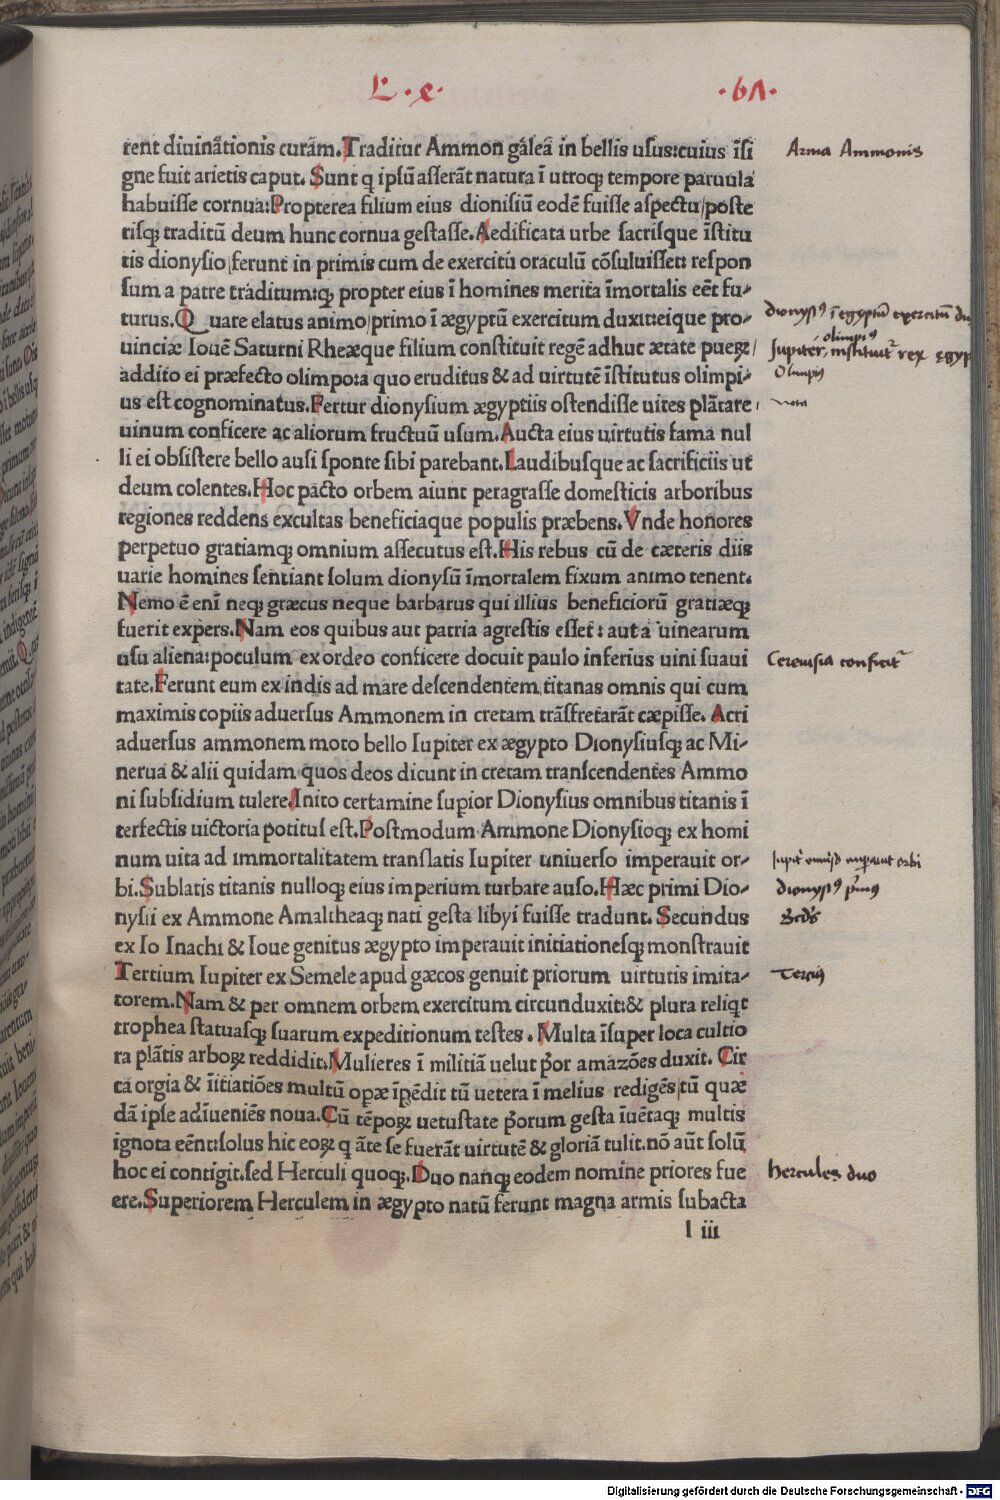 L · e ·
· 61 ·
rent diuinātionis curam. Traditur Ammon galeā in bellis usus: cuius īsi
gne fuit arietis caput. Sunt q ipsū asserāt natura ī utroq; tempore paruula
habuisse cornua: Propterea filium eius dionisiū eodē fuisse aspectu/poste
risq; traditū deum hunc cornua gestasse. Aedificata urbe sacrisque īstitu
tis dionysio/ferunt in primis cum de exercitu oraculū cōsuluisset: respon
sum a patre traditum: q; propter eius ī homines merita īmortalis eēt fu-
turus. Quare elatus animo/primo ī ægyptū exercitum duxit: eique pro-
uinciæ Iouē Saturni Rheæque filium constituit regē adhuc ætate puerꝝ/
addito ei præfecto olimpo: a quo eruditus & ad uirtutē īstitutus olimpi-
us est cognominatus. Fertur dionysium ægyptiis ostendisse uites plātare
uinum conficere ac aliorum fructuū usum. Aucta eius uirtutis fama nul
li ei obsistere bello ausi sponte sibi parebant. Laudibusque ac sacrificiis ut
deum colentes. Hoc pacto orbem aiunt peragrasse domesticis arboribus
regiones reddens excultas beneficiaque populis præbens. Vnde honores
perpetuo gratiamq; omnium assecutus est. His rebus cū de cæteris diis
uarie homines sentiant solum dionysiū īmortalem fixum animo tenent.
Nemo ē enī neq; græcus neque barbarus qui illius beneficiorū gratiæq;
fuerit expers. Nam eos quibus aut patria agrestis esset: aut a uinearum
usu aliena: poculum ex ordeo conficere docuit paulo inferius uini suaui
tate. Ferunt eum ex indis ad mare descendentem titanas omnis qui cum
maximis copiis aduersus Ammonem in cretam trāsfretarāt cæpisse. Acri
aduersus ammonem moto bello Iupiter ex ægypto Dionysiusq; ac Mi-
nerua & alii quidam quos deos dicunt in cretam transcendentes Ammo
ni subsidium tulere. Inito certamine supior Dionysius omnibus titanis ī
terfectis uictoria potitus est. Postmodum Ammone Dionysioq; ex homi
num uita ad immortalitatem translatis Iupiter uniuerso imperauit or-
bi. Sublatis titanis nulloq; eius imperium turbare auso. Hæc primi Dio-
nysii ex Ammone Amaltheaq; nati gesta libyi fuisse tradunt. Secundus
ex Io Inachi & Ioue genitus ægypto imperauit initiationesq; monstrauit
Tertium Iupiter ex Semele apud gæcos genuit priorum uirtutis imita-
torem. Nam & per omnem orbem exercitum circunduxit: & plura reliq̄t
trophea statuasq; suarum expeditionum testes. Multa īsuper loca cultio
ra plātis arboꝝ reddidit. Mulieres ī militiā uelut p̄or amazōes duxit. Cir
ca orgia & īitiatiōes multū opæ īpēdit tū uetera ī melius redigēs/tū quæ
dā ipse adīueniēs noua. Cū tēpoꝝ uetustate p̄orum gesta īuētaq; multis
ignota eēnt: solus hic eoꝝ q āte se fuerāt uirtutē & gloriā tulit. nō aūt solū
hoc ei contigit. sed Herculi quoq;. Duo nanq; eodem nomine priores fue
ere. Superiorem Herculem in ægypto natū ferunt magna armis subacta
l iii
Arma Ammonis
dionysꝰ ī egyptū exercitū du
olimpiꝰ
Jupiter, instituitr rex egyp
Olimpꝰ
nota
Ceruisia conficitr
dionysꝰ p̄mꝰ
Secdꝰ
Terciꝰ
Hercules duo
Digitalisierung gefördert durch die Deutsche Forschungsgemeinschaft - DFG